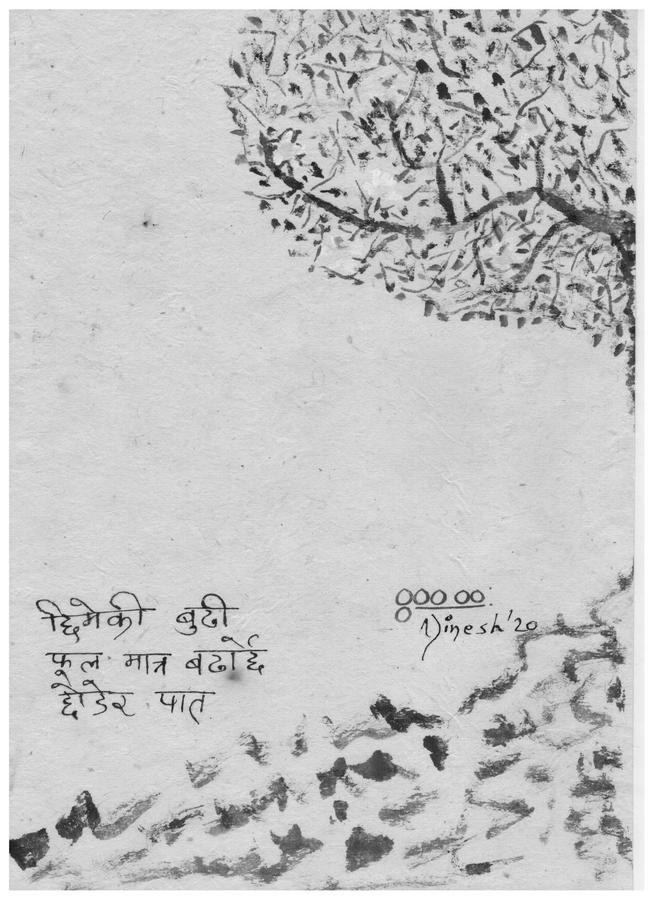 छिमेकी बुढी
फूल मात्र बढार्छे
छोडेर पात
Dinesh'20